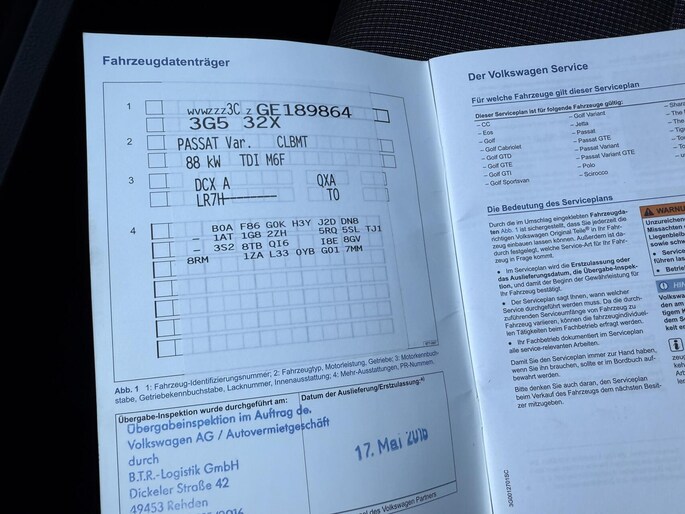 Fahrzeugdatenträger
1 WVWZZZ3C Z GE189864
3G5 32X
2 PASSAT Var. CLBMT
88 kW TDI M6F
3 DCX A QXA
LR7H TO
4 B0A F86 G0K H3Y J2D DN8
– 1AT 1G8 2ZH 5RQ 5SL TJ1
– 3S2 8TB QI6 I8E 8GV
8RM 1ZA L33 0YB G01 7MM
Abb. 1 1: Fahrzeug-Identifizierungsnummer, 2: Fahrzeugtyp, Motorleistung, Getriebe; 3: Motorkennbuch-
stabe, Getriebekennbuchstabe, Lacknummer, Innenausstattung; 4: Mehr-Ausstattungen, PR-Nummern.
Übergabe-Inspektion wurde durchgeführt am:
Übergabeinspektion im Auftrag de.
Volkswagen AG / Autovermietgeschäft
durch
B.T.R.-Logistik GmbH
Dickeler Straße 42
49453 Rehden
Datum der Auslieferung/Erstzulassung.
17. Mai 2016
des Volkswagen Partners
Der Volkswagen Service
Für welche Fahrzeuge gilt dieser Serviceplan
Dieser Serviceplan ist für folgende Fahrzeuge gültig:
– CC
– Eos
– Golf
– Golf Cabriolet
– Golf GTD
– Golf GTE
– Golf GTI
– Golf Sportsvan
– Golf Variant
– Jetta
– Passat
– Passat GTE
– Passat Variant
– Passat Variant GTE
– Polo
– Scirocco
– Shara
– The
– The
– Tig
– Tou
– To
– u
Die Bedeutung des Serviceplans
Durch die im Umschlag eingeklebten Fahrzeugda-
ten Abb. 1 ist sichergestellt, dass Sie jederzeit die
richtigen Volkswagen Original Teile® in Ihr Fahr-
zeug einbauen lassen können. Außerdem ist da-
durch festgelegt, welche Service-Art für Ihr Fahr-
zeug in Frage kommt.
● Im Serviceplan wird die Erstzulassung oder
das Auslieferungsdatum, die Übergabe-Inspek-
tion, und damit der Beginn der Gewährleistung für
Ihr Fahrzeug bestätigt.
● Der Serviceplan sagt Ihnen, wann welcher
Service durchgeführt werden muss. Da die durch-
zuführenden Serviceumfänge von Fahrzeug zu
Fahrzeug variieren, können die fahrzeugindividuel-
len Tätigkeiten beim Fachbetrieb erfragt werden.
● Ihr Fachbetrieb dokumentiert im Serviceplan
alle service-relevanten Arbeiten.
Damit Sie den Serviceplan immer zur Hand haben,
wenn Sie ihn brauchen, sollte er im Bordbuch auf-
bewahrt werden.
Bitte denken Sie auch daran, den Serviceplan
beim Verkauf des Fahrzeugs dem nächsten Besit-
zer mitzugeben.
WARNU
Unzureichen
Missachten
Liegenbleibe
sowie schw
● Service
führen las
● Betrie
HIN
Volkswa
den am
tigem K
dem S
keit er